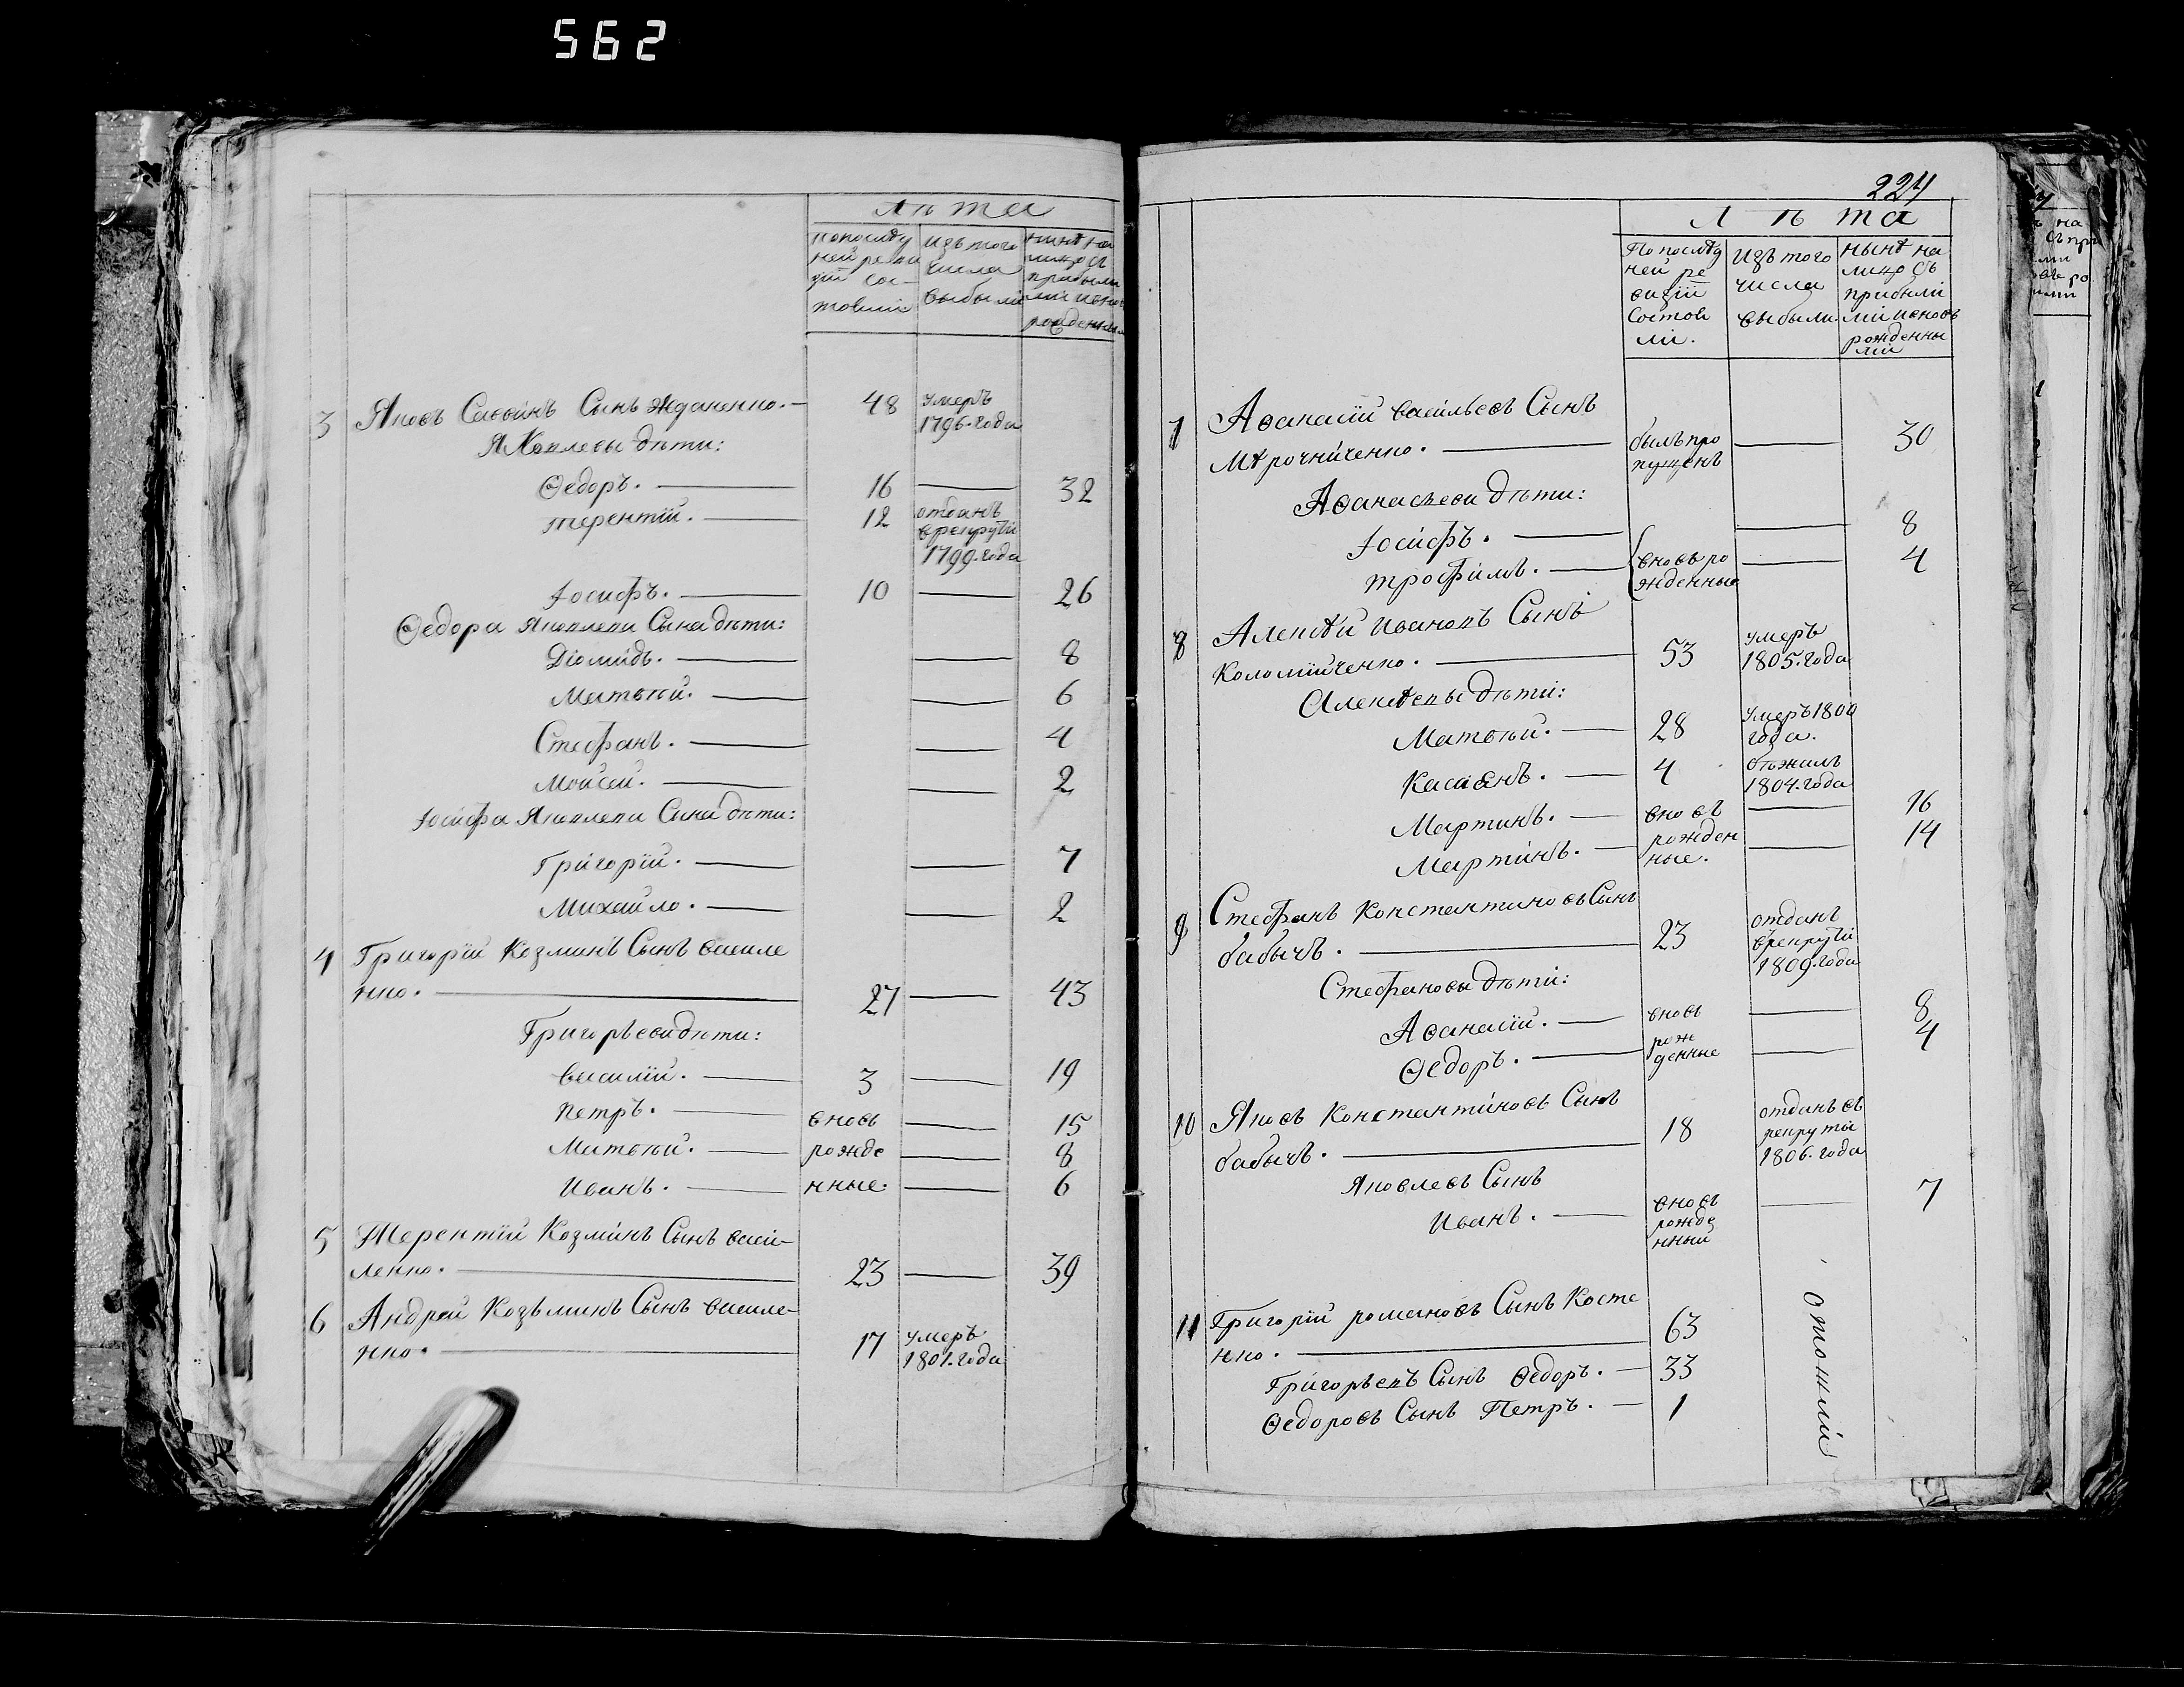 562
лѣта
попослѣд
ней реви
зіи сос-
тояли
Изъ того
числа
выбыли
нынѣ на
лицо съ
прибыли
ми и вновь
рожденны
3 Яковъ Саввинъ Сынъ Жданенко. — 48 умеръ
1796. года
Яковлевы дѣти:
Ѳедоръ. — 16 — 32
терентїй. — 12 отданъ
в рекруты
1799. года
Іосифъ. — 10 — 26
Ѳедора Яковлева Сына дѣти:
Діомидъ. — — 8
Матвѣй. — — 6
Стефанъ. — — 4
Мойсей. — — 2
Іосифа Яковлева Сына дѣти:
Григорїй. — — 7
Михайло. — — 2
4 Григорїй Козминъ Сынъ василе
нко. — 27 — 43
Григорьеви дѣти:
василїй. — 3 — 19
петръ. — вновь — 15
Матвѣй. — рожде — 8
Иванъ. — нные. — 6
5 Терентїй Козминъ Сынъ васи-
ленко. — 23 — 39
6 Андрей Козьминъ Сынъ василе-
нко. — 17 умеръ
1801. года
224
лѣта
По послѣд
ней ре
визіи
Состоя
ли.
Изъ того
числа
выбыли
нынѣ на
лицо съ
прибыли
ми и вновь
рожденны
ми
7 Аѳанасїй васильевъ Сынъ
Мѣрочниченко. — былъ про
пущенъ — 30
Аѳанасьеви дѣти:
Іосифъ. — — 8
трофимъ. — вновь ро
жденные — 4
8 Алексѣй Ивановъ Сынъ
Коломийченко. — 53 умеръ
1805. года
Алексѣевы дѣти:
Матвѣй. — 28 умеръ 1800
года.
Касаянъ. — 4 бѣжалъ
1804. года
Мартинъ. — вновь — 16
Мартинъ. — рожден
ные. — 14
9 Стефанъ Константиновъ Сынъ
бабычъ. — 23 отданъ
в рекруты
1809. года
Стефановы дѣти:
Аѳанасїй. — вновь — 8
Ѳедоръ. — рож
денные — 4
10 Яковъ Константиновъ Сынъ
бабычъ. — 18 отданъ въ
рекруты
1806. года
Яковлевъ Сынъ
Иванъ. — вновь
рожде
нный — 7
11 Григорїй романовъ Сынъ Косте
нко. — 63
Григорьевъ Сынъ Ѳедоръ. — 33
Ѳедоровъ Сынъ Петръ. — 1